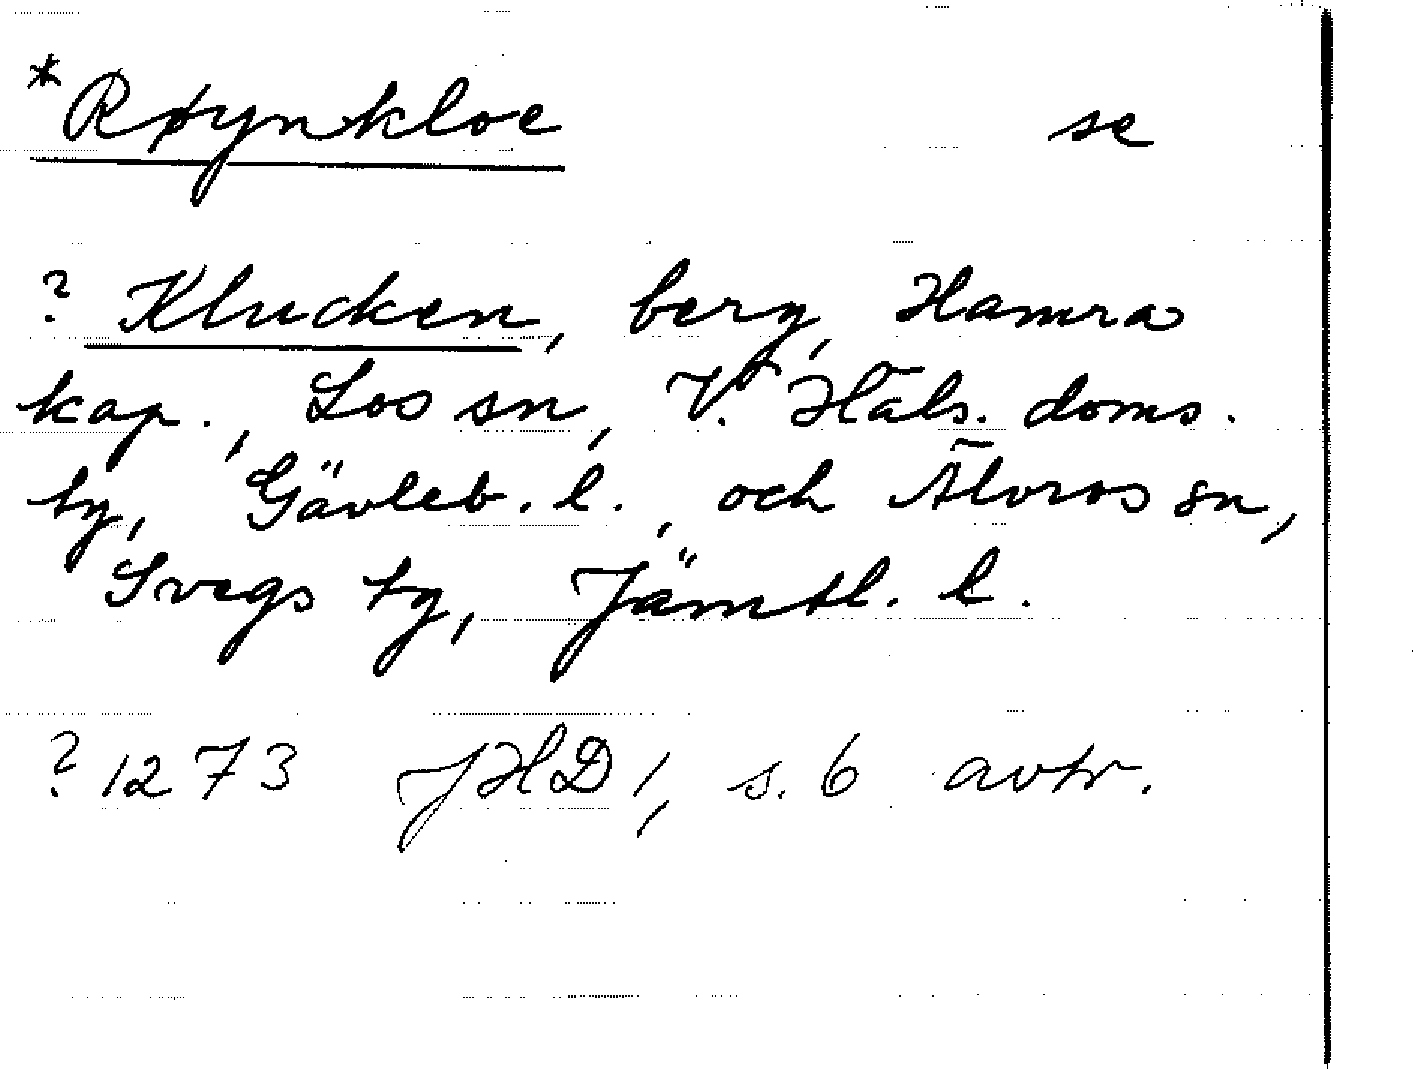 *Røynkloe se
? Klucken, berg, Hamra
kap., Los sn, V. Häls. doms.
tg, Gävleb. l., och Älvros sn,
Svegs tg, Jämtl. l.
? 1273 JHD 1, s. 6 avtr.